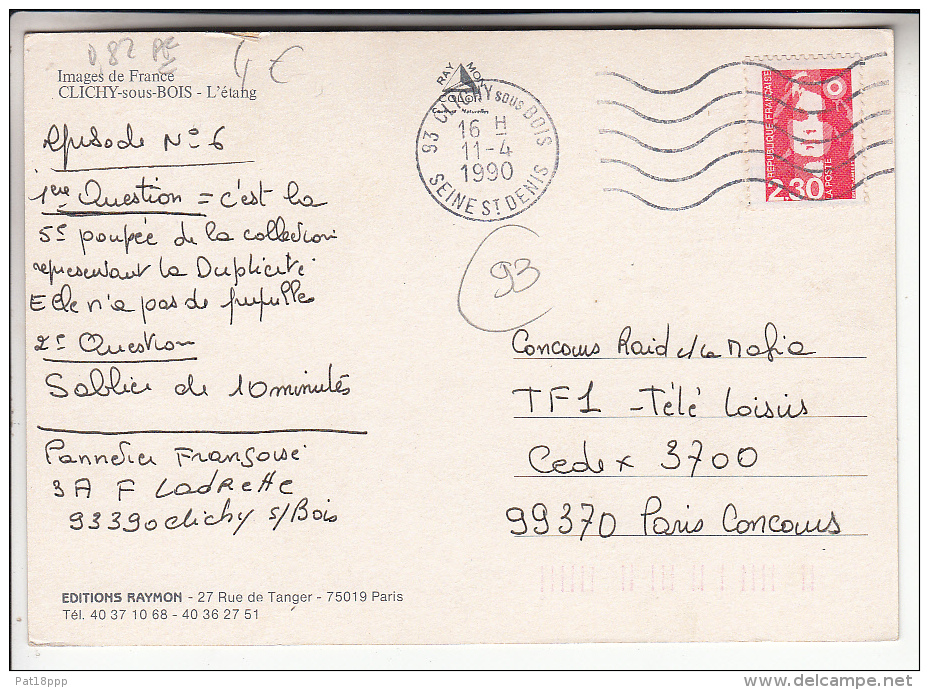 0,82 PE
4 €
Images de France
CLICHY-sous-BOIS - L'étang
Episode N° 6
1ere Question = c'est la
5e poupée de la collection
représentant la Duplicité
Elle n'a pas de pupille
2e Question
Sablier de 10 minutes
Pannetier Françoise
3 A F Ladrette
93390 clichy s/Bois
EDITIONS RAYMON - 27 Rue de Tanger - 75019 Paris
Tél. 40 37 10 68 - 40 36 27 51
RAYMON
COLOR
93 CLICHY SOUS BOIS
16 H
11-4
1990
SEINE ST DENIS
REPUBLIQUE FRANÇAISE
2,30
LA POSTE
93
Concours Raid c/ la Mafia
TF1 - Télé Loisirs
Cedex 3700
99370 Paris Concours
Pat18ppp
delcampe.net